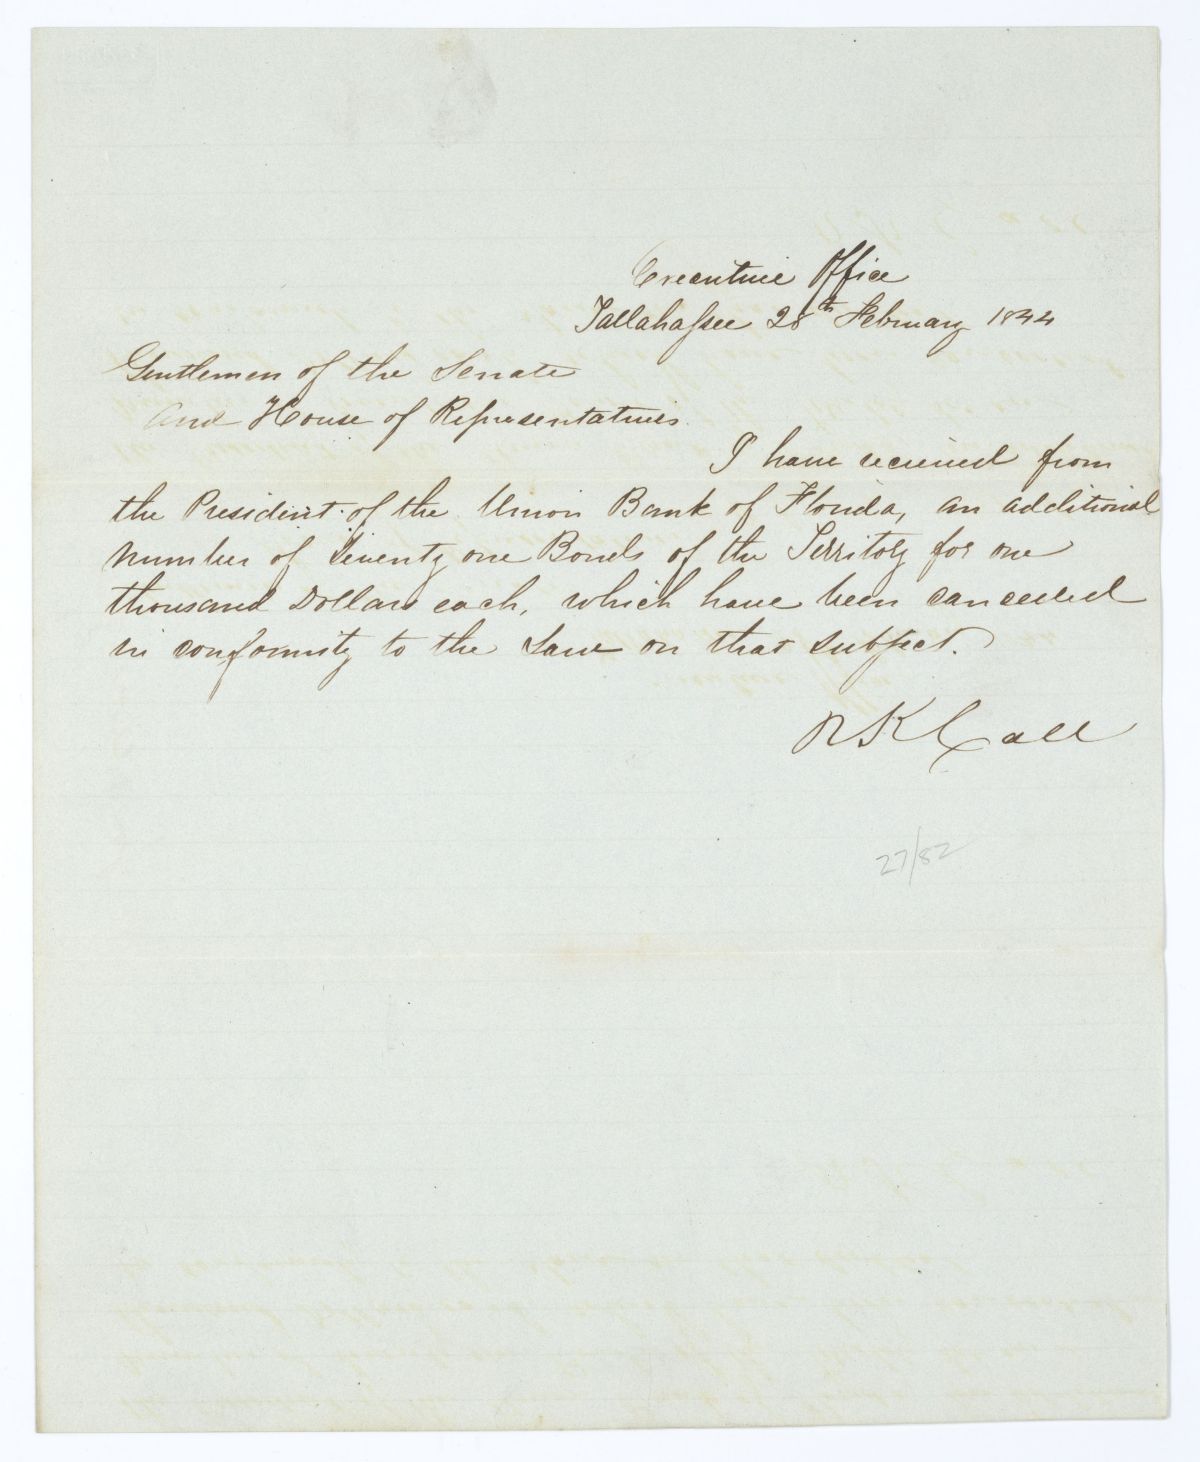 Executive Office
Tallahassee 28th February 1844
Gentlemen of the Senate
and House of Representatives.
I have received from
the President of the Union Bank of Florida, an additional
number of Seventy one Bonds of the Territory for one
thousand Dollars each, which have been cancelled
in conformity to the Law on that subject.
R K Call
27/82